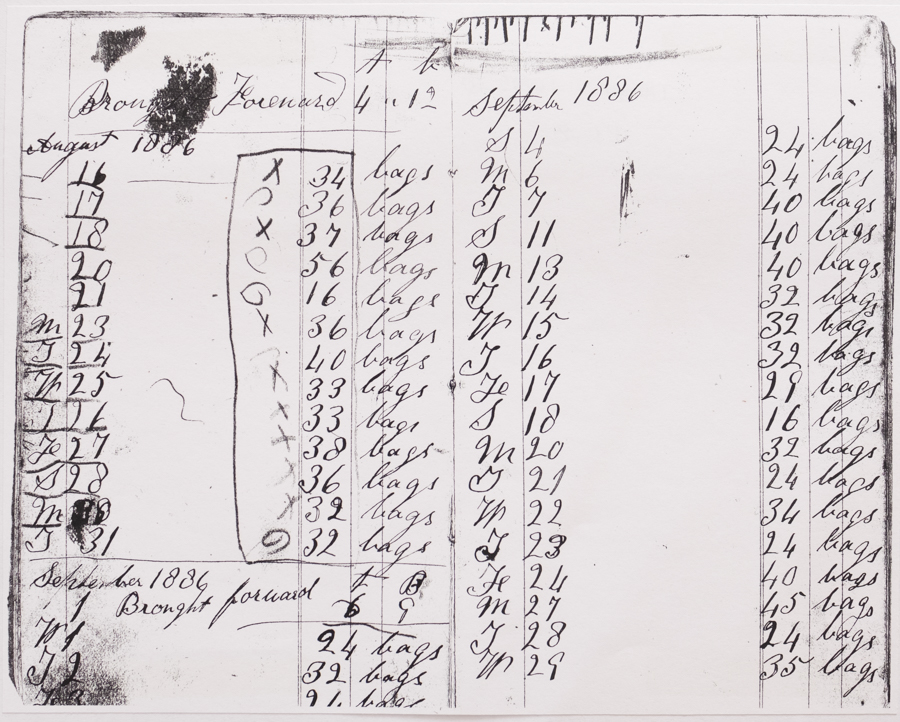 t b
Brought Foreward 4 " 19
August 1886
16 X 34 bags
17 36 bags
18 X 37 bags
20 56 bags
21 G 16 bags
M 23 X 36 bags
T 24 40 bags
W 25 X 33 bags
T 26 X 33 bags
Fe 27 X 38 bags
S 28 X 36 bags
M X 32 bags
T 31 G 32 bags
September 1886 t B
1 Brought forward 6 9
W 1 24 bags
T 2 32 bags
bags
September 1886
S 4 24 bags
M 6 24 bags
T 7 40 bags
S 11 40 bags
M 13 40 bags
T 14 32 bags
W 15 32 bags
T 16 32 bags
Fe 17 29 bags
S 18 16 bags
M 20 32 bags
T 21 24 bags
W 22 34 bags
T 23 24 bags
Fe 24 40 bags
M 27 45 bags
T 28 24 bags
W 29 35 bags